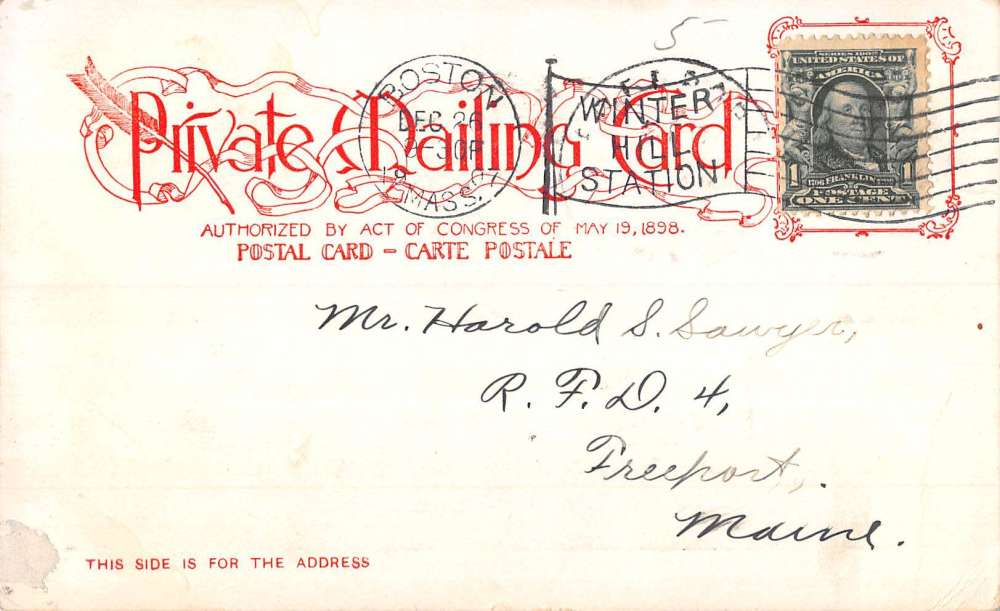 5
Private Mailing Card
BOSTON
DEC 26
MASS.
WINTER
HILL
STATION
SERIES 1902
UNITED STATES OF
AMERICA
1 1
FRANKLIN
POSTAGE
ONE CENT
AUTHORIZED BY ACT OF CONGRESS OF MAY 19, 1898.
POSTAL CARD - CARTE POSTALE
Mr. Harold S. Sawyer,
R. F. D. 4,
Freeport,
Maine.
THIS SIDE IS FOR THE ADDRESS